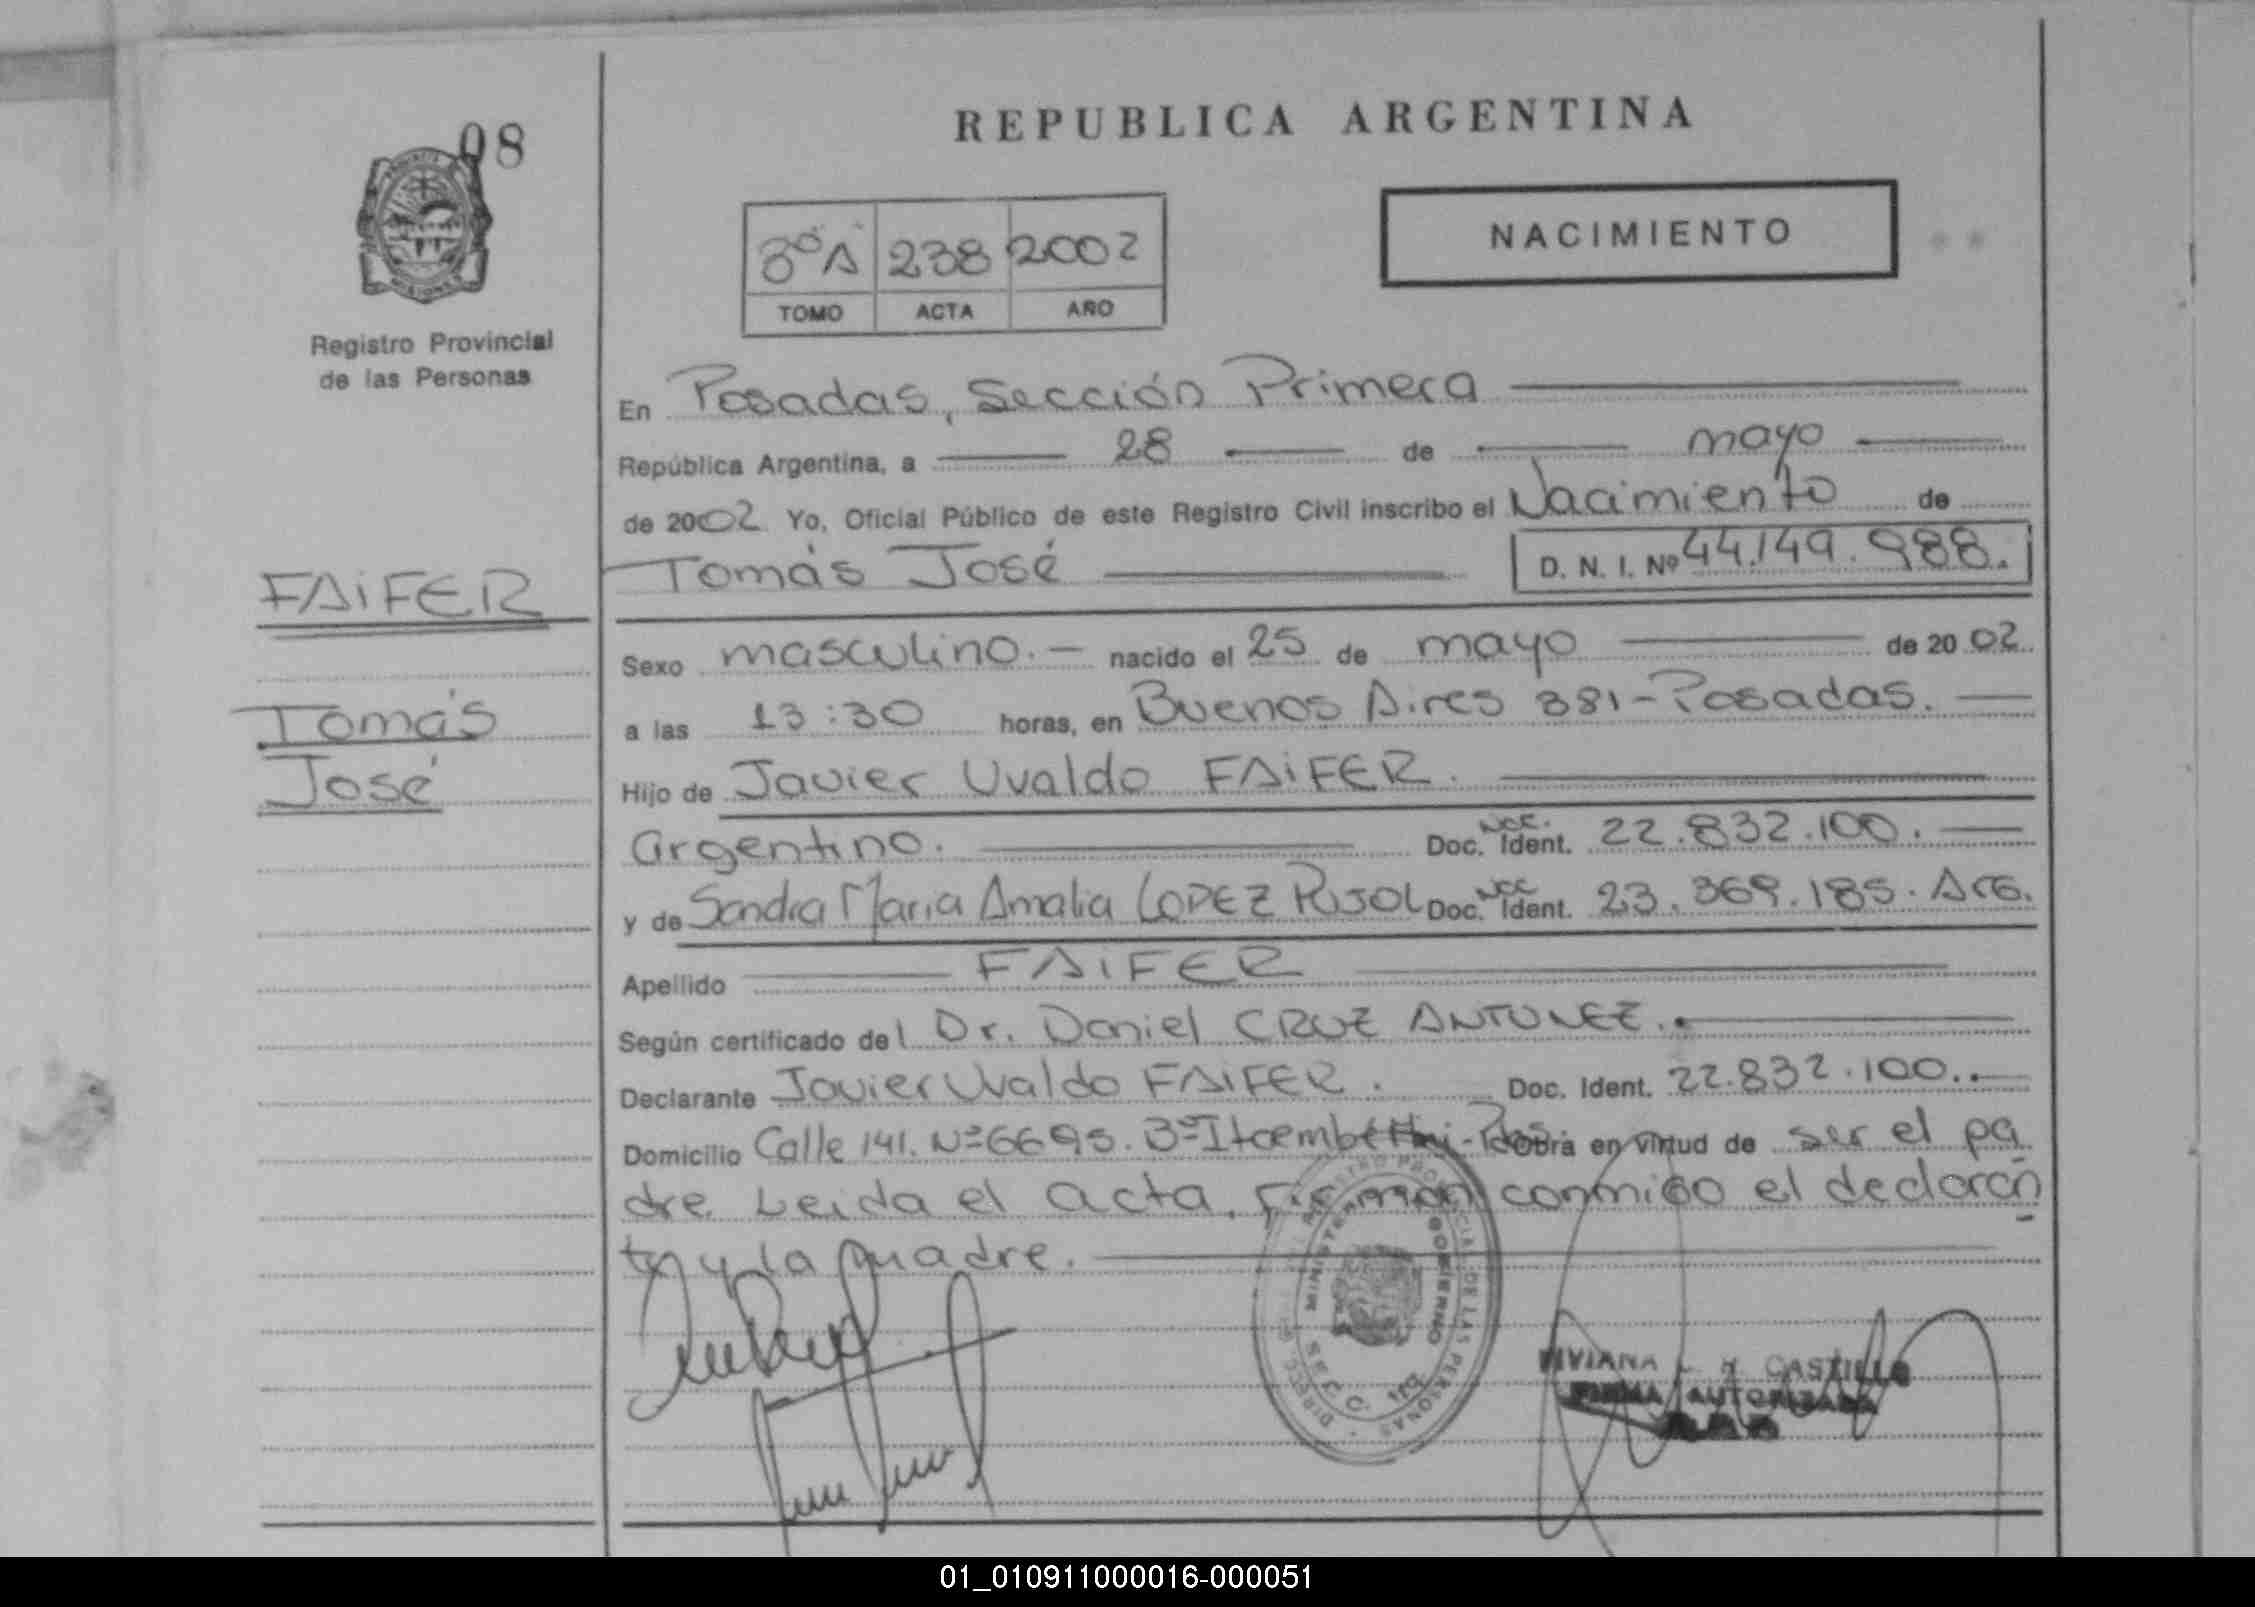 08
REPUBLICA ARGENTINA
NACIMIENTO
3º A 238 2002
TOMO ACTA AÑO
Registro Provincial
de las Personas
En Posadas, Sección Primera
República Argentina, a 28 de mayo
de 2002 Yo, Oficial Público de este Registro Civil inscribo el Nacimiento de
Tomás José D. N. I. Nº 44.149.988.
FAiFER
Sexo masculino.- nacido el 25 de mayo de 20 02
Tomás
a las 13:30 horas, en Buenos Aires 381-Posadas.
José
Hijo de Javier Uvaldo FAiFER.
argentino. Doc. Ident. 22.832.100.
y de Sandra Maria Amalia LOPEZ PUJOL Doc. Ident. 23.369.185. Arg.
Apellido FAiFER
Según certificado del Dr. Daniel CRUZ ANTUNEZ.
Declarante Javier Uvaldo FAIFER. Doc. Ident. 22.832.100.
Domicilio Calle 141. Nº 6695. Bº Itaembé - Pdas obra en virtud de ser el pa
dre Leida el acta, Firman conmigo el declaran
te y la madre.
DIRECC. REGISTRO PROVINCIAL DE LAS PERSONAS
MINISTERIO GOBIERNO
SECC. 1ra
VIVIANA CASTILLO
FIRMA AUTORIZADA
01_010911000016-000051